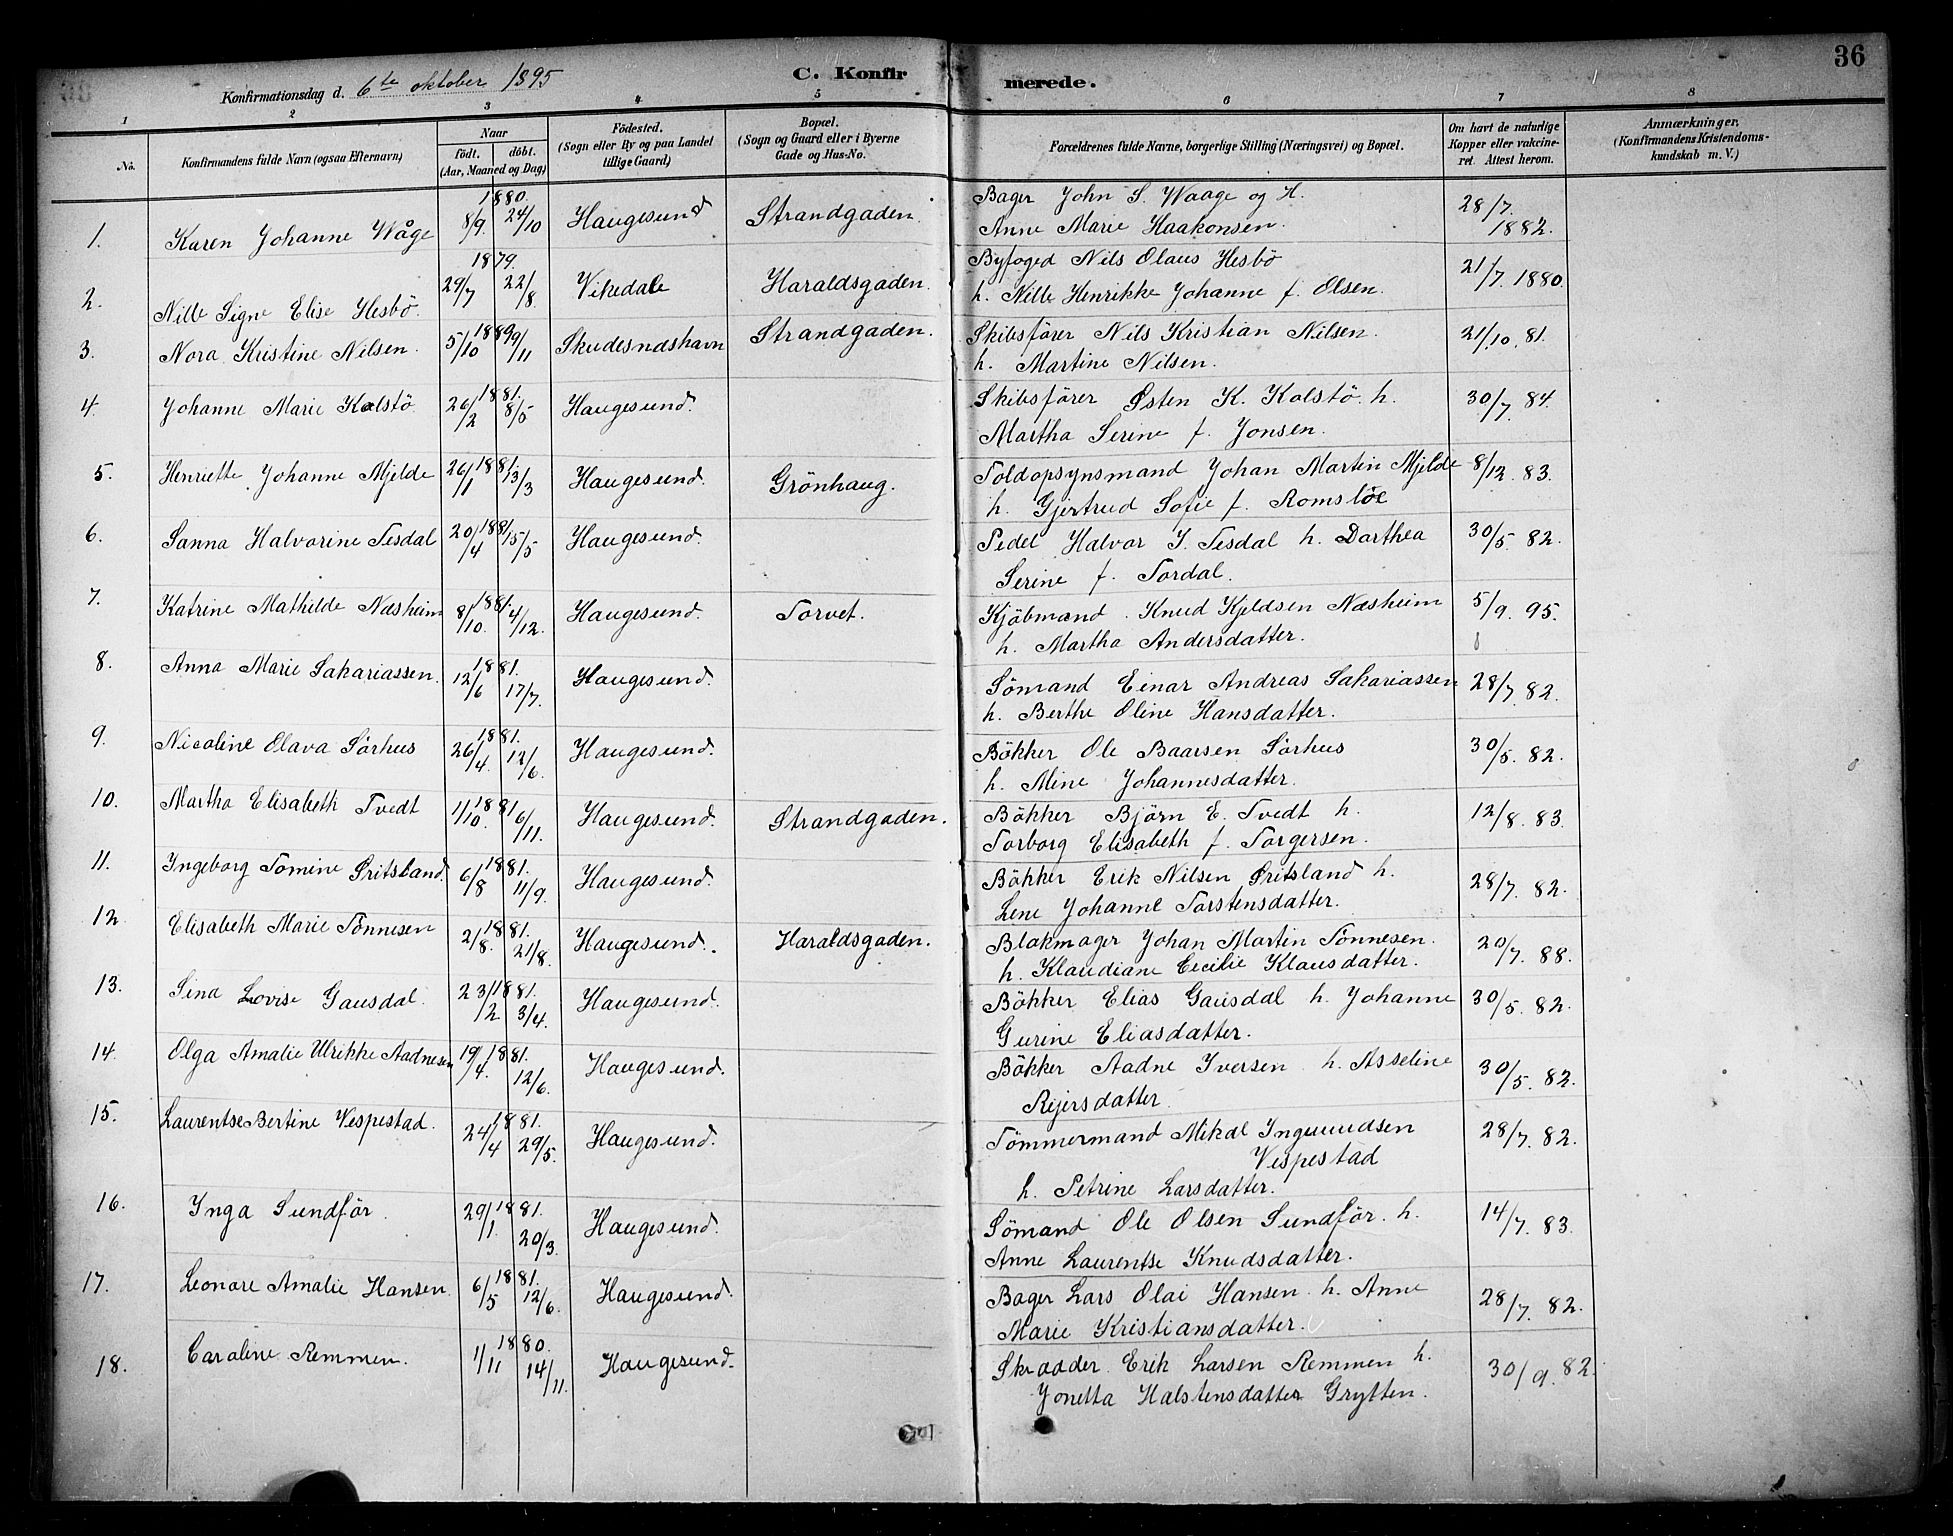 36
Konfirmationsdag d. 6te oktober 1895
C. Konfirmerede.
1 2 3 4 5 6 7 8
No. Konfirmandens fulde Navn (ogsaa Efternavn) Naar født. døbt. (Aar, Maaned og Dag) Fødested. (Sogn eller By og paa Landet tillige Gaard) Bopæl. (Sogn og Gaard eller i Byerne Gade og Hus-No. Forældrenes fulde Navne, borgerlige Stilling (Næringsvei) og Bopæl. Om havt de naturlige Kopper eller vakcineret. Attest herom. Anmærkninger. (Konfirmandens Kristendomskundskab m. V.)
1. Karen Johanne Wåge 1880. 8/9. 24/10 Haugesund Strandgaden. Bager John S. Waage og H. 28/7. 1882.
Anne Marie Haakonsen.
2. Nille Signe Elise Hesbö. 1879. 29/7 22/8 Vikedale Haraldsgaden. Byfoged Nils Olaus Hesbö 21/7. 1880.
h. Nille Henrikke Johanne f. Olsen.
3. Nora Kristine Nilsen. 5/10 1880 9/11 Skudesnæshavn Strandgaden. Skibsförer Nils Kristian Nilsen. 21/10. 81.
h. Martine Nilsen.
4. Johanne Marie Kolstö 26/2 1881. 8/5 Haugesund. Skibsförer Østen K. Kolstö. h. 30/7. 84.
Martha Serine f. Jonsen.
5. Henriette Johanne Mjelde 26/1 1881. 13/3 Haugesund. Grönhaug. Toldopsynsmand Johan Martin Mjelde 8/12. 83.
h. Gjertrud Sofie f. Romslöe
6. Sanna Halvorine Tesdal 20/4 1881 15/5 Haugesund. Pedel Halvor J. Tesdal h. Dorthea 30/5. 82.
Serine f. Tordal.
7. Katrine Mathilde Næsheim 8/10. 1881. 4/12. Haugesund. Torvet. Kjöbmand Knud Kjeldsen Næsheim 5/9. 95.
h. Martha Andersdatter.
8. Anna Marie Sakariassen. 12/6 1881. 17/7. Haugesund. Sömand Einar Andreas Sakariassen 28/7. 82.
h. Berthe Oline Hansdatter.
9. Nicoline Olava Sörhus 26/4. 1881. 12/6. Haugesund. Bökker Ole Baarsen Sörhus 30/5. 82.
h. Mine Johannesdatter.
10. Martha Elisabeth Tvedt 1/10. 1881 6/11. Haugesund. Strandgaden. Bökker Björn E. Tvedt h. 12/8. 83.
Torborg Elisabeth f. Torgersen.
11. Ingeborg Tomine Pritsland. 6/8 1881. 11/9. Haugesund. Bökker Erik Nilsen Pritsland h. 28/7. 82.
Lene Johanne Torstensdatter.
12. Elisabeth Marie Tönnesen 2/8. 1881. 21/8. Haugesund. Haraldsgaden. Blokmager Johan Martin Tönnesen. 20/7. 88.
h. Klaudiane Cecilie Klausdatter.
13. Sina Lovise Gausdal. 23/2 1881. 3/4. Haugesund. Bökker Elias Gausdal h. Johanne 30/5. 82.
Gurine Eliasdatter.
14. Olga Amalie Ulrikke Aadnesen 19/4. 1881. 12/6. Haugesund. Bökker Aadne Iversen h. Asseline 30/5. 82.
Reiersdatter
15. Laurentse Bertine Vespestad. 24/4 1881. 29/5. Haugesund. Tömmermand Mikal Ingmundsen 28/7. 82.
Vespestad
h. Petrine Larsdatter.
16. Inga Sundför. 29/1. 1881. 20/3. Haugesund. Sömand Ole Olsen Sundför. h. 14/7. 83.
Anne Laurentse Knudsdatter.
17. Leonore Amalie Hansen. 6/5 1881. 12/6. Haugesund. Bager Lars Olai Hansen h. Anne 28/7. 82.
Marie Kristiansdatter.
18. Caroline Remmen. 1/11 1880. 14/11. Haugesund. Skrædder Erik Larsen Remmen h. 30/9. 82.
Jonetta Halstensdatter Grytten.